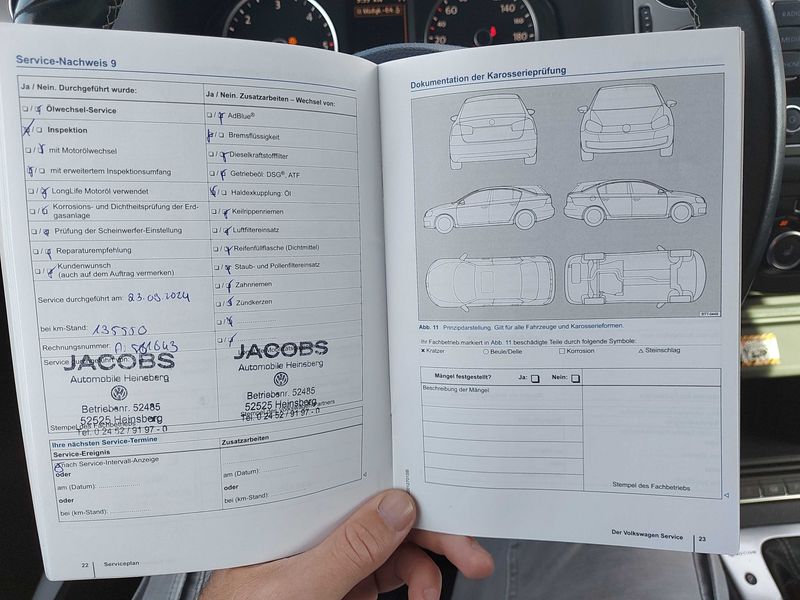 Service-Nachweis 9
Ja / Nein. Durchgeführt wurde:
Ölwechsel-Service
Inspektion
mit Motorölwechsel
mit erweitertem Inspektionsumfang
LongLife Motoröl verwendet
Korrosions- und Dichtheitsprüfung der Erd-
gasanlage
Prüfung der Scheinwerfer-Einstellung
Reparaturempfehlung
Kundenwunsch
(auch auf dem Auftrag vermerken)
Service durchgeführt am: 23.09.2024
bei km-Stand: 135550
Rechnungsnummer:
JACOBS
Automobile Heinsberg
Betriebsnr. 52485
52525 Heinsberg
Tel. 0 24 52 / 91 97 - 0
Ja / Nein. Zusatzarbeiten – Wechsel von:
AdBlue®
Bremsflüssigkeit
Dieselkraftstofffilter
Getriebeöl: DSG®, ATF
Haldexkupplung: Öl
Keilrippenriemen
Luftfiltereinsatz
Reifenfüllflasche (Dichtmittel)
Staub- und Pollenfiltereinsatz
Zahnriemen
Zündkerzen
JACOBS
Automobile Heinsberg
Betriebsnr. 52485
52525 Heinsberg
Tel. 0 24 52 / 91 97 - 0
Ihre nächsten Service-Termine
Service-Ereignis
Zusatzarbeiten
nach Service-Intervall-Anzeige
oder
am (Datum):
oder
bei (km-Stand):
am (Datum):
oder
bei (km-Stand):
22 Serviceplan
Dokumentation der Karosserieprüfung
Abb. 11 Prinzipdarstellung. Gilt für alle Fahrzeuge und Karosserieformen.
Ihr Fachbetrieb markiert in Abb. 11 beschädigte Teile durch folgende Symbole:
× Kratzer ○ Beule/Delle □ Korrosion △ Steinschlag
Mängel festgestellt? Ja: Nein:
Beschreibung der Mängel
Stempel des Fachbetriebs
Der Volkswagen Service 23